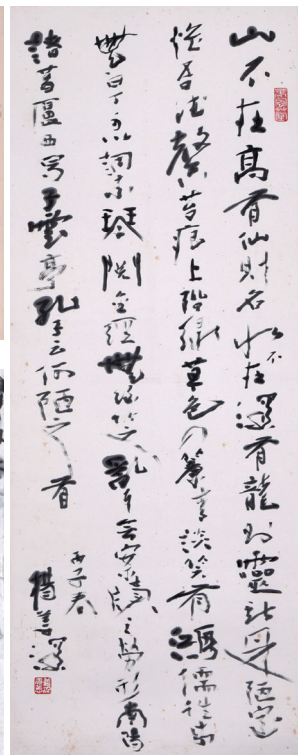 山不在高有仙則名水不在深有龍則靈斯是陋室
惟吾德馨苔痕上階綠草色入簾青談笑有鴻儒往來
無白丁可以調素琴閱金經無絲竹之亂耳無案牘之勞形南陽
諸葛廬西蜀子雲亭孔子云何陋之有
丙子春
楊善深